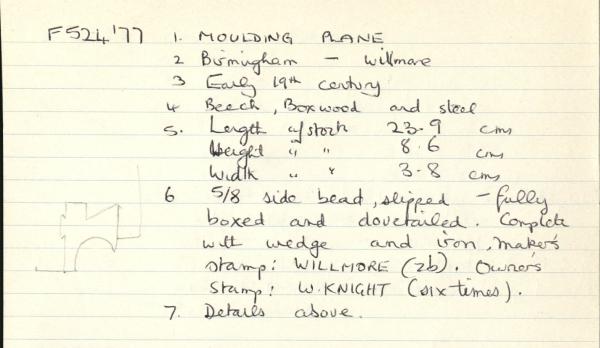 F524'77 1. MOULDING PLANE
2 Birmingham – Willmore
3 Early 19th century
4 Beech, Boxwood and steel
5. Length of stock 23.9 cms
Height " " 8.6 cms
Width " " 3.8 cms
6 5/8 side bead, slipped – fully
boxed and dovetailed. Complete
with wedge and iron, maker's
stamp: WILLMORE (2b). Owner's
stamp: W.KNIGHT (six times).
7. Details above.